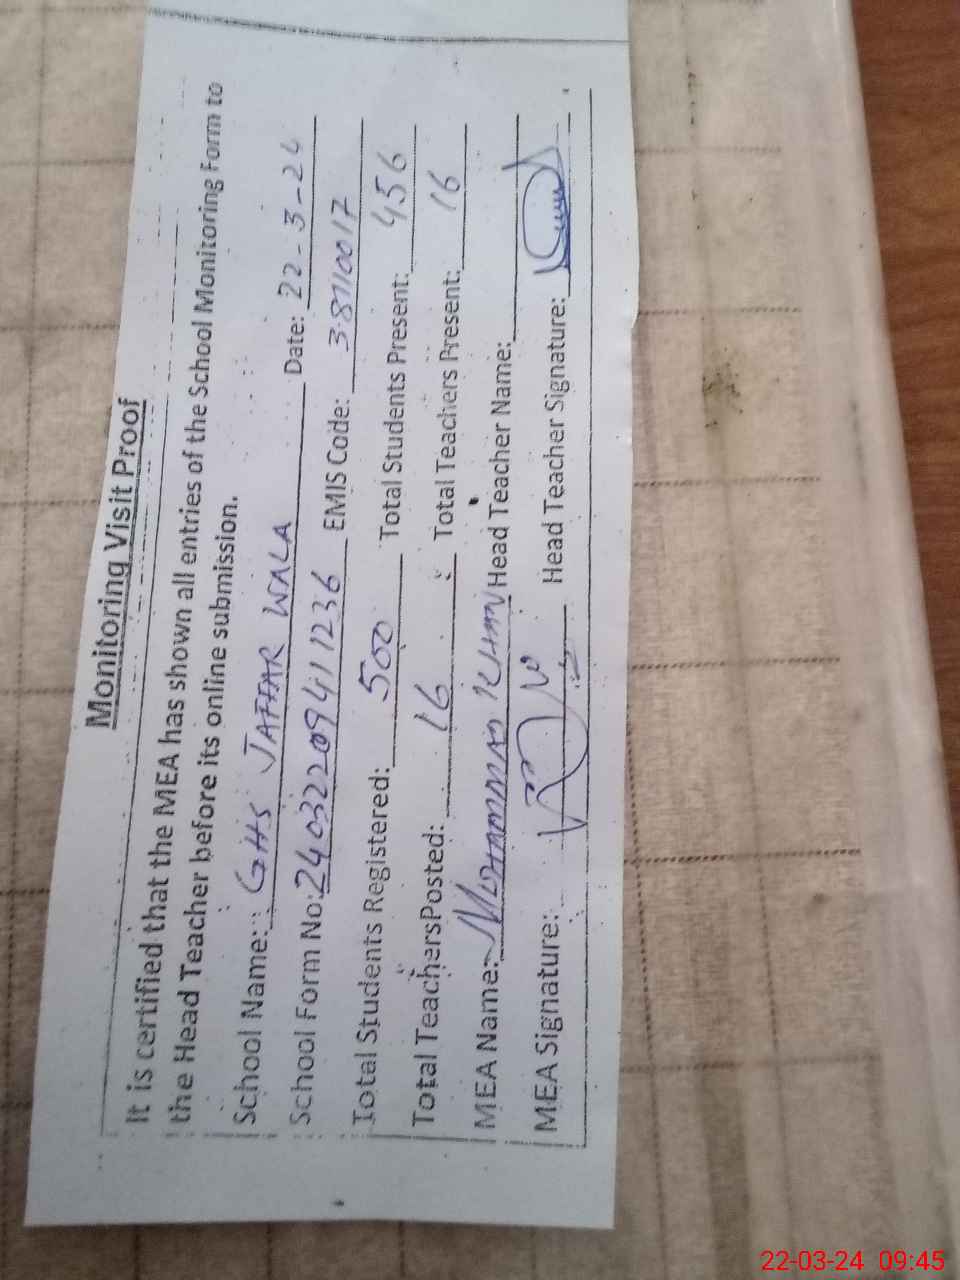 Monitoring Visit Proof
It is certified that the MEA has shown all entries of the School Monitoring Form to
the Head Teacher before its online submission.
School Name: GHS JAFFAR WALA Date: 22-3-24
School Form No: 240322094111236 EMIS Code: 38110017
Total Students Registered: 500 Total Students Present: 456
Total TeachersPosted: 16 Total Teachers Present: 16
MEA Name: MUHAMMAD KHAN Head Teacher Name:
MEA Signature: Head Teacher Signature:
22-03-24 09:45